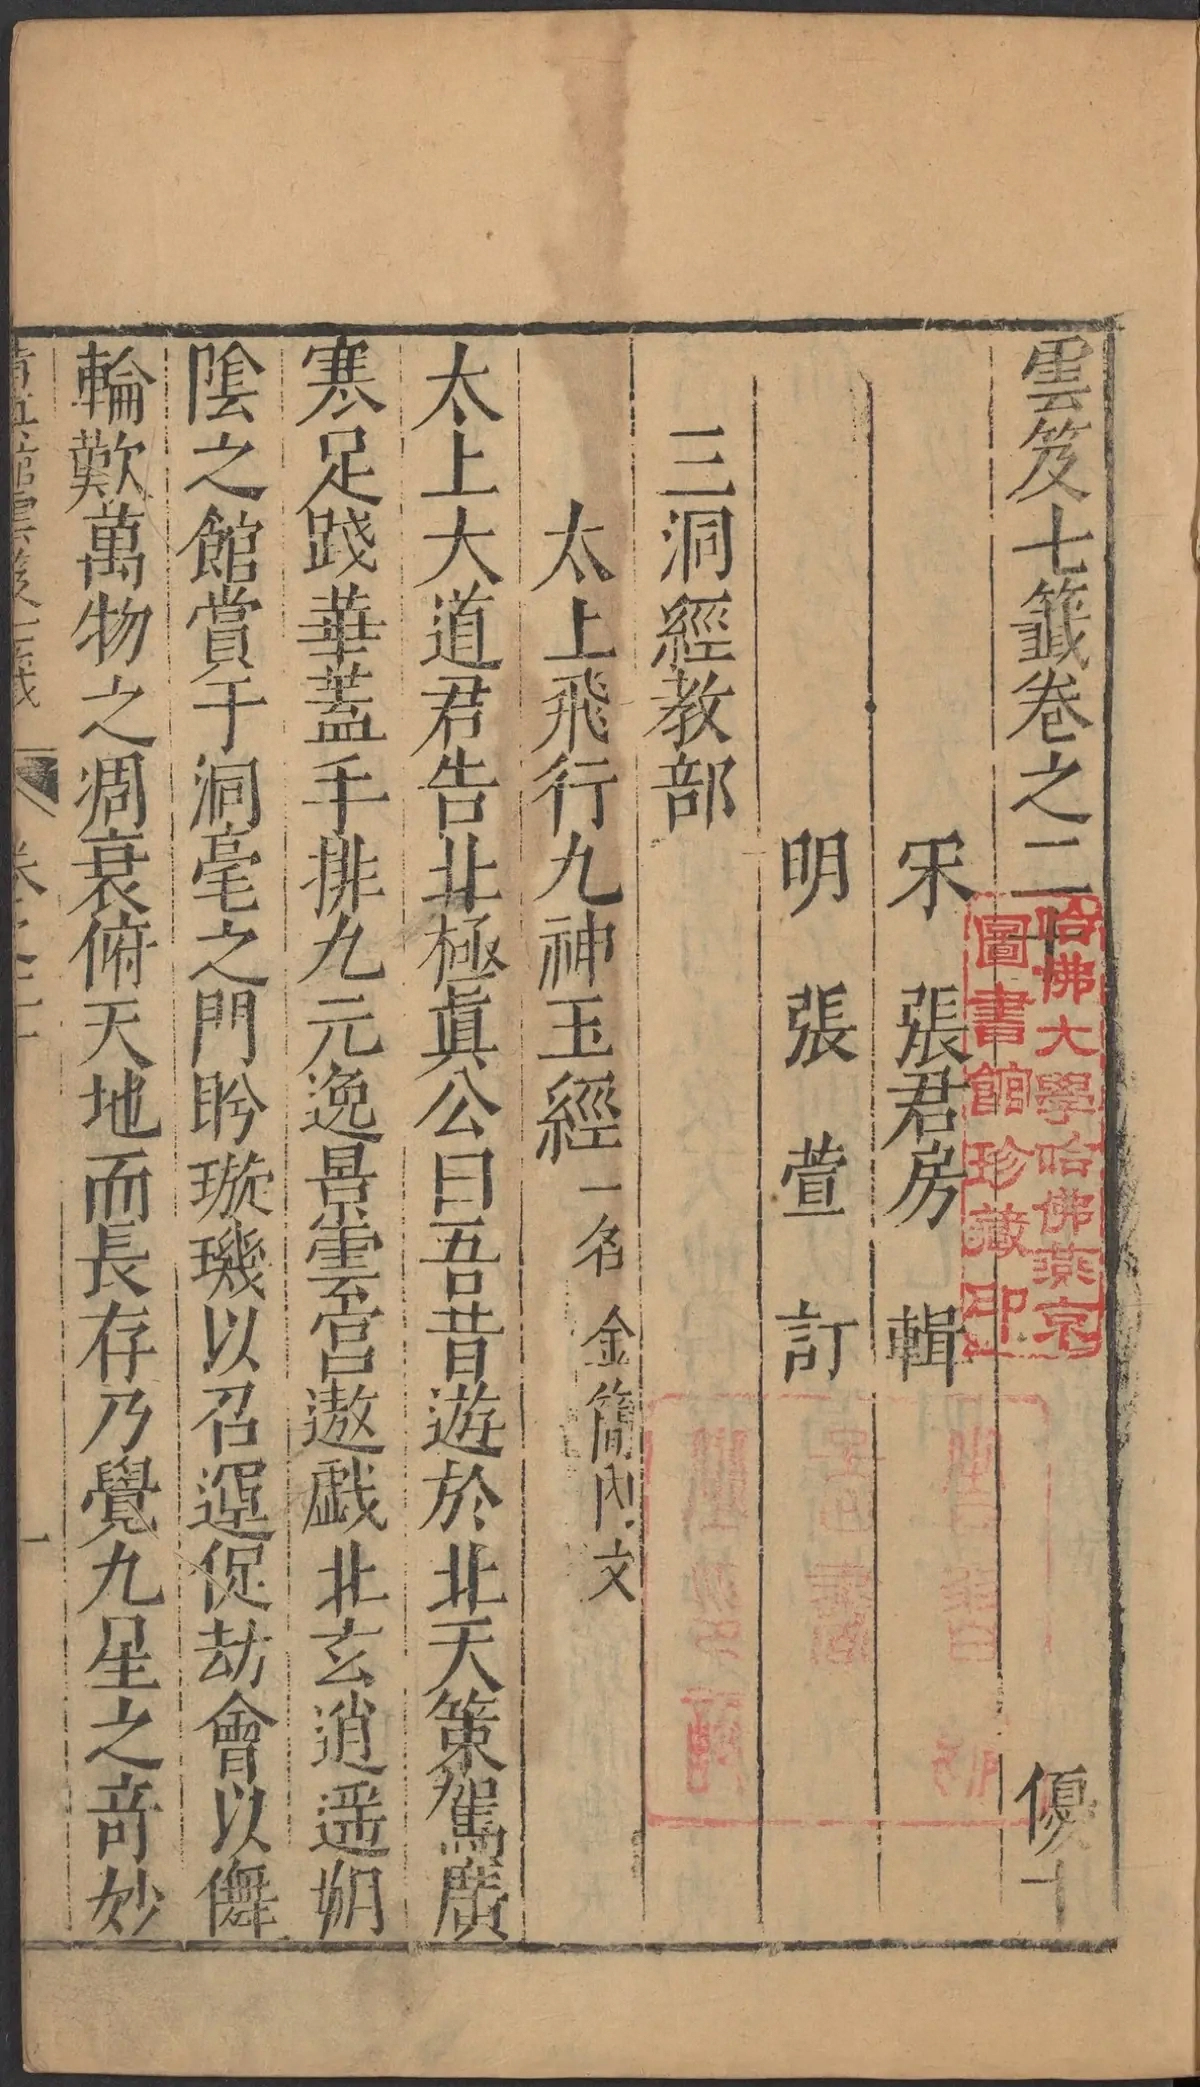 雲笈七籤卷之二十 優十
宋 張君房 輯
明 張萱 訂
三洞經教部
太上飛行九神玉經一名金簡內文
太上大道君告北極眞公曰吾昔遊於北天策駕廣
寒足踐華蓋手排九元逸景雲宮遨戲北玄逍遥朔
陰之館賞于洞毫之門眄璇璣以召運促劫會以儛
輪歎萬物之凋衰俯天地而長存乃覺九星之奇妙
清真館雲笈七籤 卷之二十 一
哈佛大學哈佛燕京
圖書館珍藏印